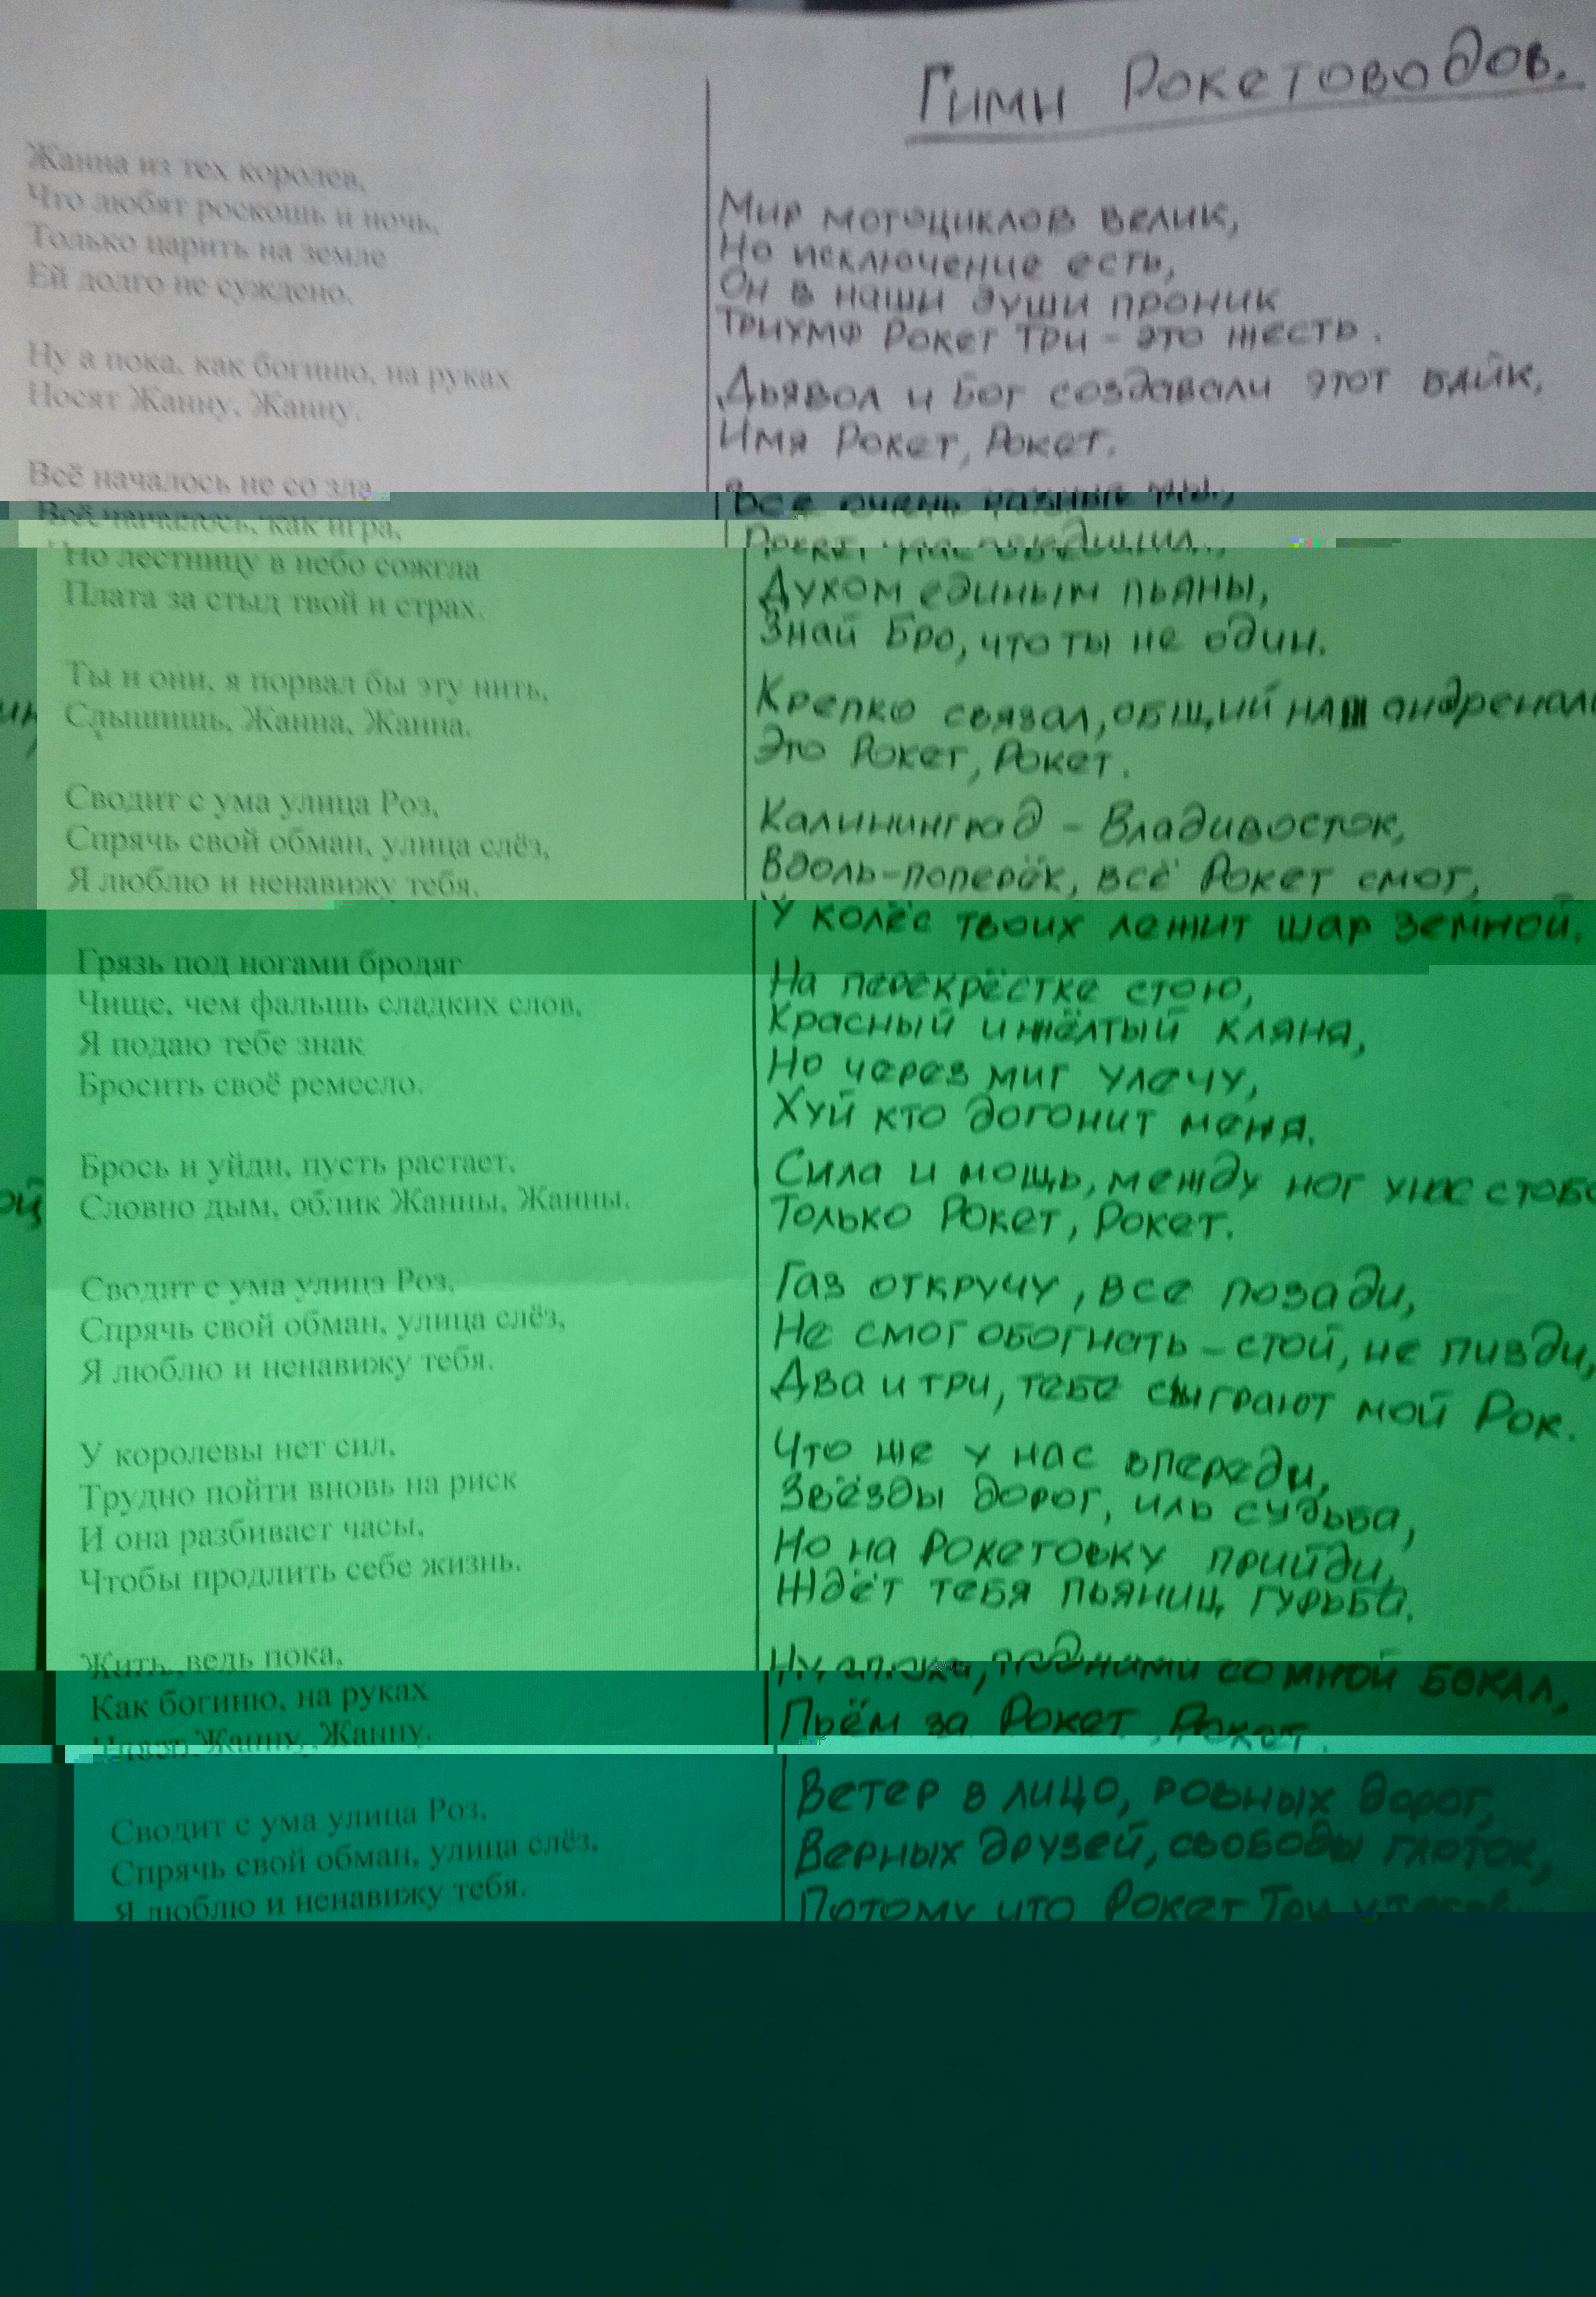 Гимн Рокетоводов.
Жанна из тех королев,
Что любят роскошь и ночь,
Только царить на земле
Ей долго не суждено.
Ну а пока, как богиню, на руках
Носят Жанну, Жанну.
Всё началось не со зла
Всё началось, как игра,
Но лестницу в небо сожгла
Плата за стыд твой и страх.
Ты и они, я порвал бы эту нить,
Слышишь, Жанна, Жанна.
Сводит с ума улица Роз,
Спрячь свой обман, улица слёз,
Я люблю и ненавижу тебя.
Грязь под ногами бродяг
Чище, чем фальшь сладких слов,
Я подаю тебе знак
Бросить своё ремесло.
Брось и уйди, пусть растает,
Словно дым, облик Жанны, Жанны.
Сводит с ума улица Роз,
Спрячь свой обман, улица слёз,
Я люблю и ненавижу тебя.
У королевы нет сил,
Трудно пойти вновь на риск
И она разбивает часы,
Чтобы продлить себе жизнь.
Жить, ведь пока,
Как богиню, на руках
Носят Жанну, Жанну.
Сводит с ума улица Роз,
Спрячь свой обман, улица слёз,
Я люблю и ненавижу тебя.
Мир мотоциклов велик,
Но исключение есть,
Он в наши души проник
Триумф Рокет Три - это жесть.
Дьявол и Бог создавали этот байк,
Имя Рокет, Рокет.
Все очень разные мы,
Рокет, нас
Духом единым пьяны,
Знай Бро, что ты не один.
Крепко связал, общий наш андренали
Это Рокет, Рокет.
Калининград - Владивосток,
Вдоль-поперёк, всё Рокет смог,
У колёс твоих лежит шар земной.
На перекрёстке стою,
Красный и жёлтый кляня,
Но через миг улечу,
Хуй кто догонит меня.
Сила и мощь, между ног у нас с тобо
Только Рокет, Рокет.
Газ откручу, все позади,
Не смог обогнать - стой, не пизди,
Два и три, тебе сыграют мой Рок.
Что же у нас впереди,
Звёзды дорог, иль судьба,
Но на Рокетовку прийди,
Ждёт тебя пьяниц гурьба.
Ну а пока, подними со мной бокал,
Пьём за Рокет, Рокет.
Ветер в лицо, ровных дорог,
Верных друзей, свободы глоток,
Потому что Рокет Три у тебя